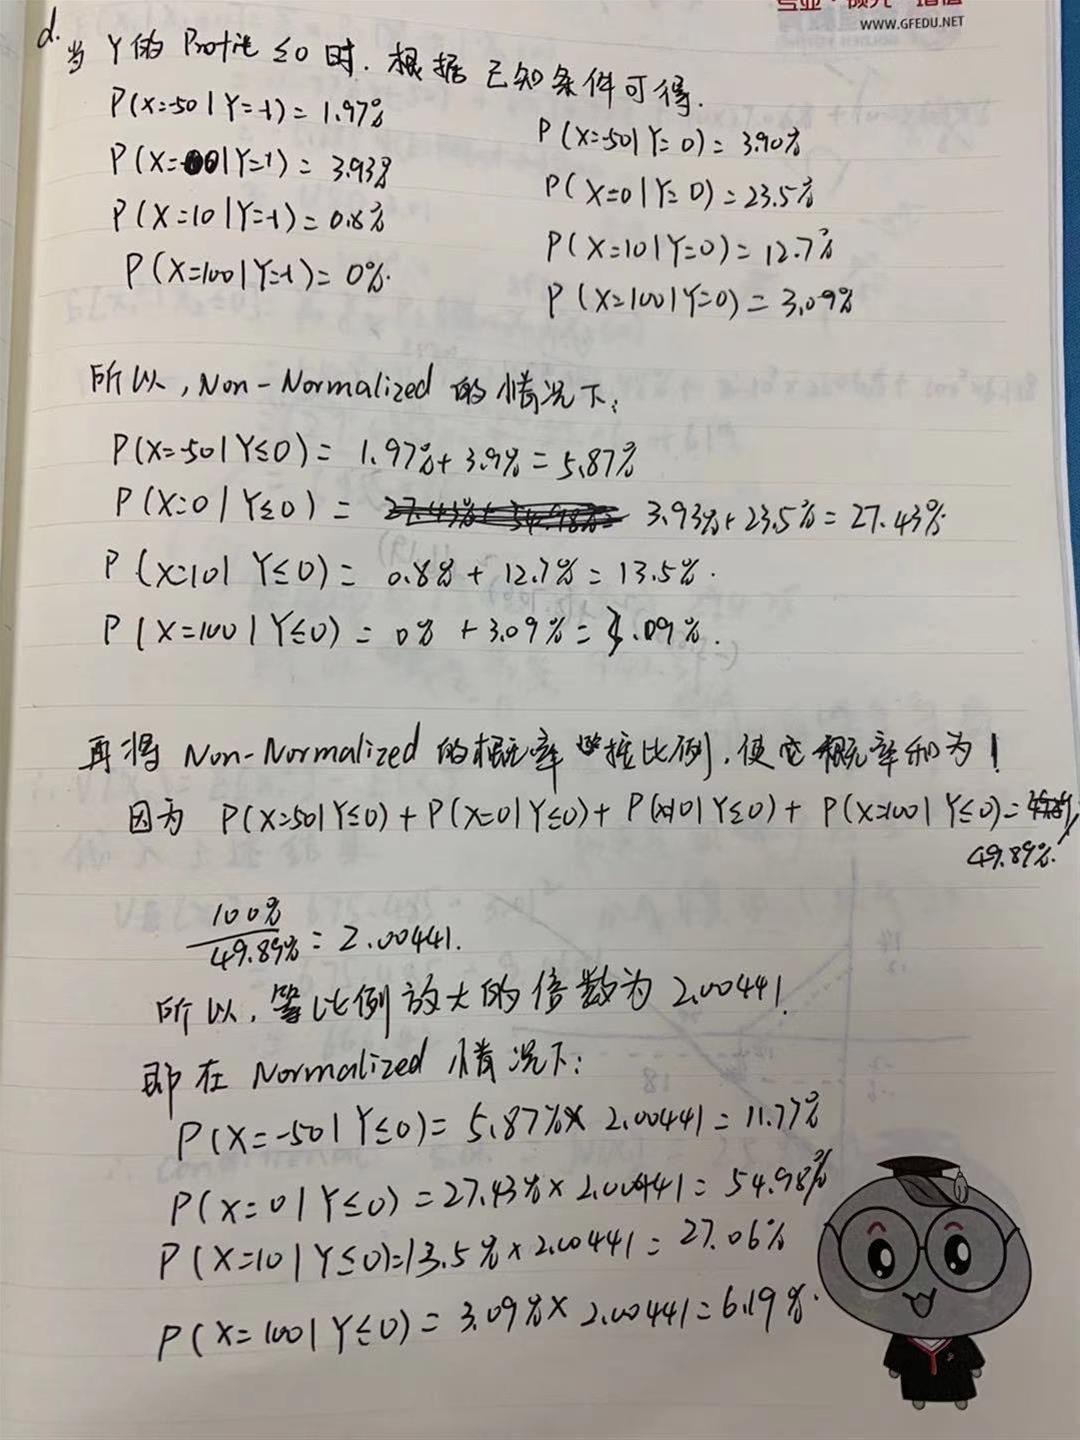 专业·领先·增值
WWW.GFEDU.NET
d.
当 Y 的 Profit ≤0 时, 根据 已知条件可得.
P(X=-50 | Y=-1) = 1.97%
P(X=-50 | Y=0) = 3.90%
P(X=0 | Y=-1) = 3.93%
P(X=0 | Y=0) = 23.5%
P(X=10 | Y=-1) = 0.8%
P(X=10 | Y=0) = 12.7%
P(X=100 | Y=-1) = 0%.
P(X=100 | Y=0) = 3.09%
所以, Non-Normalized 的情况下:
P(X=-50 | Y≤0) = 1.97% + 3.9% = 5.87%
P(X=0 | Y≤0) = 3.93% + 23.5% = 27.43%.
P(X=10 | Y≤0) = 0.8% + 12.7% = 13.5%.
P(X=100 | Y≤0) = 0% + 3.09% = 3.09%.
再将 Non-Normalized 的概率 按比例, 使它概率和为 1
因为 P(X=50 | Y≤0) + P(X=0 | Y≤0) + P(X=10 | Y≤0) + P(X=100 | Y≤0) =
49.89%.
100%/49.89% = 2.00441.
所以, 等比例放大的倍数为 2.00441.
即在 Normalized 情况下:
P(X=-50 | Y≤0) = 5.87% × 2.00441 = 11.77%
P(X=0 | Y≤0) = 27.43% × 2.00441 = 54.98%
P(X=10 | Y≤0) = 13.5% × 2.00441 = 27.06%
P(X=100 | Y≤0) = 3.09% × 2.00441 = 6.19%.